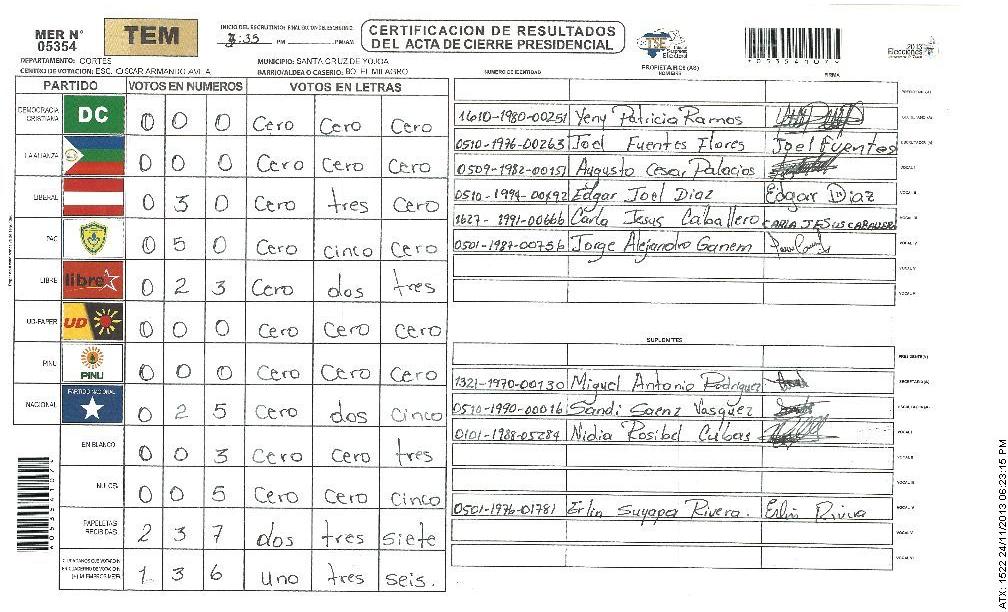 MER N° 05354
TEM
INICIO DEL ESCRUTINIO: FINALIZACION DEL ESCRUTINIO:
3:35 PM PM/AM
CERTIFICACION DE RESULTADOS
DEL ACTA DE CIERRE PRESIDENCIAL
TSE Tribunal Supremo Electoral
2013 Elecciones
DEPARTAMENTO: CORTES
MUNICIPIO: SANTA CRUZ DE YOJOA
CENTRO DE VOTACION: ESC. OSCAR ARMANDO AVILA
BARRIO/ALDEA O CASERIO: BO. EL MILAGRO
PARTIDO VOTOS EN NUMEROS VOTOS EN LETRAS
DEMOCRACIA CRISTIANA DC 0 0 0 Cero Cero Cero
LA ALIANZA 0 0 0 Cero Cero Cero
LIBERAL 0 3 0 Cero tres Cero
PAC 0 5 0 Cero cinco Cero
LIBRE libre 0 2 3 Cero dos tres
UD-FAPER UD 0 0 0 Cero Cero Cero
PINU PINU 0 0 0 Cero Cero Cero
NACIONAL PARTIDO NACIONAL 0 2 5 Cero dos cinco
EN BLANCO 0 0 3 Cero Cero tres
NULOS 0 0 5 Cero Cero cinco
PAPELETAS RECIBIDAS 2 3 7 dos tres siete
1 3 6 uno tres seis.
A053541074
PROPIETARIOS (AS)
NUMERO DE IDENTIDAD NOMBRE FIRMA
1610-1980-00251 Yeny Patricia Ramos
0510-1976-00263 Joel Fuentes Flores Joel Fuentes
0509-1982-00151 Augusto Cesar Palacios
0510-1994-00492 Edgar Joel Diaz Edgar Diaz
1627-1991-00666 Carla Jesus Caballero CARLA JESUS CABALLERO
0501-1987-00756 Jorge Alejandro Ganem
SUPLENTES
1321-1970-00130 Miguel Antonio Rodriguez
0510-1990-00016 Sandi Saenz Vasquez
0101-1988-05284 Nidia Rosibel Cubas
0501-1976-01781 Erlin Suyapa Rivera. Erlin Rivera
ATX: 1522 24/11/2013 06:23:15 PM